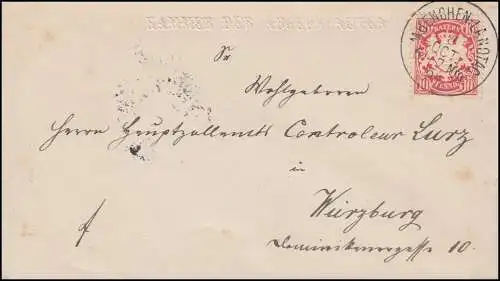 MUENCHEN LANDTAG
OCT
BAYERN
PFENNIG
Sr
Wohlgeboren
Herrn Hauptzollamts Controleur Lurz
in
Würzburg
Dominikanergasse 10.